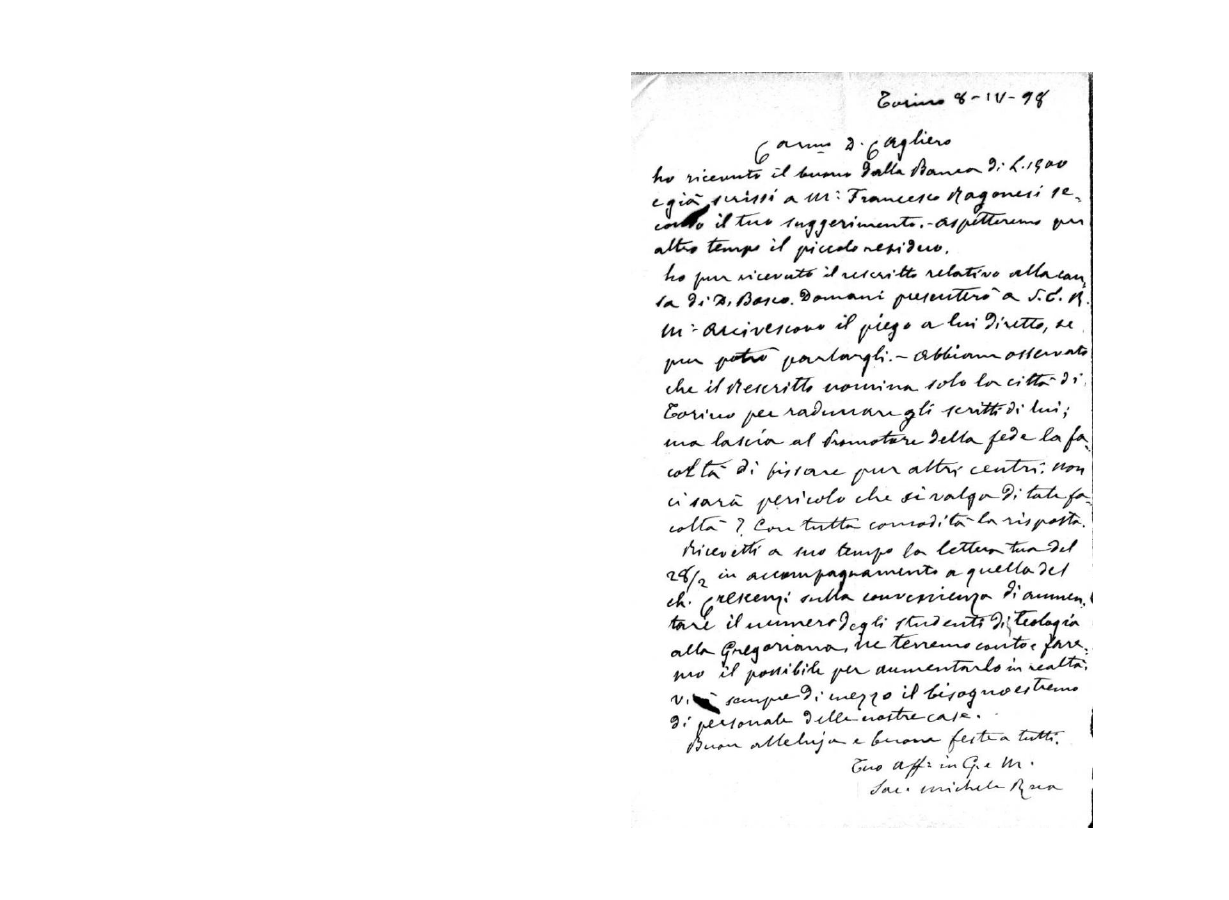 Torino 8-IV-98
Carmo D. Cagliero
ho ricevuto il buono dalla Banca di L. 1900
e già scrissi a Mr Francesco Ragonesi se-
condo il tuo suggerimento.- aspetteremo per
altro tempo il piccolo residuo.
ho pur ricevuto il rescritto relativo alla cau,
sa di D. Bosco. Domani presenterò a S. E. R.
Mr Arcivescovo il piego a lui diretto, se
pur potrò parlargli.- Abbiamo osservato
che il Rescritto nomina solo la città di
Torino per radunare gli scritti di lui;
ma lascia al Promotore della fede la fa-
coltà di fissare pur altri centri: non
ci sarà pericolo che si valga di tale fa-
coltà? Con tutta comodità la risposta.
Ricevetti a suo tempo la lettera tua del
28/2 in accompagnamento a quella del
ch. Crescenzi sulla convenienza di aumen,
tare il numero degli studenti di teologia
alla Gregoriana, ne terremo conto e fare-
mo il possibile per aumentarlo in realtà.
V. è sempre di mezzo il bisogno estremo
di personale delle nostre case.
Buon alleluja e buone feste a tutti.
Tuo aff. in G. e M.
Sac. Michele Rua